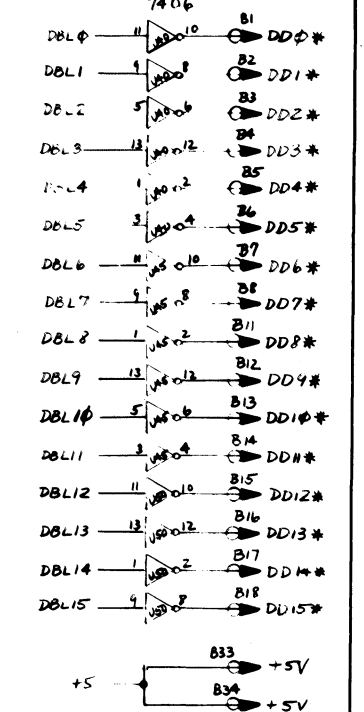 7406
DBLØ 11 UA0 10 B1 DDØ*
DBL1 9 UA0 8 B2 DD1*
DBL2 5 UA0 6 B3 DD2*
DBL3 13 UA0 12 B4 DD3*
DBL4 1 UA0 2 B5 DD4*
DBL5 3 UA0 4 B6 DD5*
DBL6 11 UA5 10 B7 DD6*
DBL7 9 UA5 8 B8 DD7*
DBL8 1 UA5 2 B11 DD8*
DBL9 13 UA5 12 B12 DD9*
DBL1Ø 5 UA5 6 B13 DD1Ø*
DBL11 3 UA5 4 B14 DD11*
DBL12 11 U50 10 B15 DD12*
DBL13 13 U50 12 B16 DD13*
DBL14 1 U50 2 B17 DD14*
DBL15 9 U50 8 B18 DD15*
B33 +5V
+5
B34 +5V